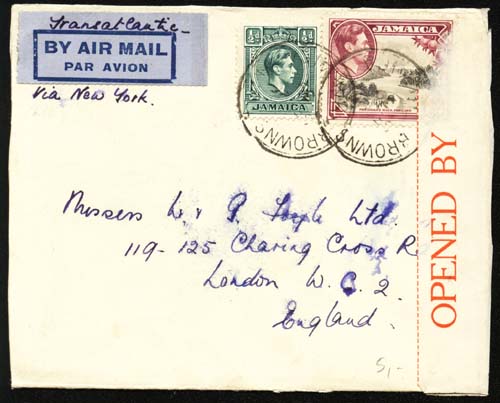 Transatlantic
BY AIR MAIL
PAR AVION
Via New York.
½d
JAMAICA
JAMAICA
BROWNS
BROWNS
OPENED BY
Messers W & G. Foyle Ltd.
119-125 Charing Cross R
London W.C.2.
England.
5/-